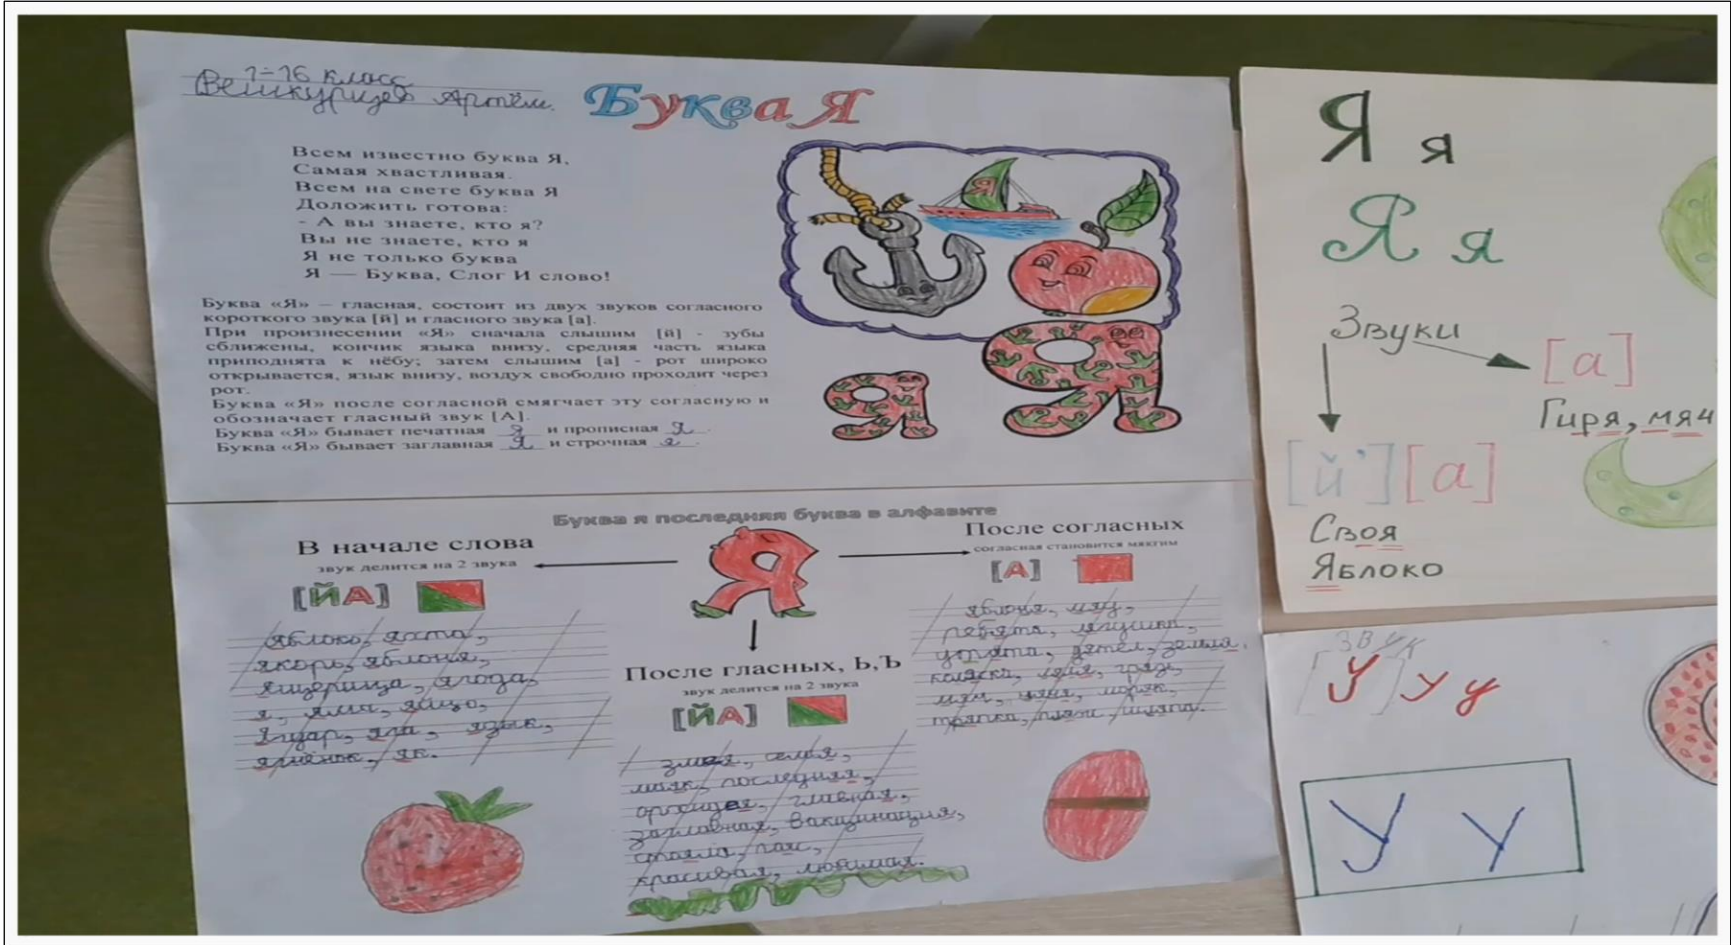 1-16 класс
Артём.
Буква Я
Всем известно буква Я,
Самая хвастливая.
Всем на свете буква Я
Доложить готова:
- А вы знаете, кто я?
Вы не знаете, кто я
Я не только буква
Я — Буква, Слог И слово!
Буква «Я» – гласная, состоит из двух звуков согласного
короткого звука [й] и гласного звука [а].
При произнесении «Я» сначала слышим [й] - зубы
сближены, кончик языка внизу, средняя часть языка
приподнята к нёбу; затем слышим [а] - рот широко
открывается, язык внизу, воздух свободно проходит через
рот.
Буква «Я» после согласной смягчает эту согласную и
обозначает гласный звук [А].
Буква «Я» бывает печатная Я и прописная Я.
Буква «Я» бывает заглавная Я и строчная я.
Буква я последняя буква в алфавите
В начале слова
звук делится на 2 звука
[ЙА]
яблоко, яхта,
якорь, яблоня,
ящерица, ягода,
я, яма, яйцо,
ягуар, яга, язык,
ягнёнок, як.
После гласных, Ь,Ъ
звук делится на 2 звука
[ЙА]
змея, семья,
маяк, последняя,
орхидея, главная,
заглавная, вакцинация,
стояла, пояс,
красивая, любимая.
После согласных
согласная становится мякгим
[А]
яблоня, мяч,
ребята, лягушка,
дятел, земля,
коляска, грязь,
мяч, няня, моряк,
тряпка, пляж, шляпа.
Я я
Я я
Звуки
[а]
Гиря, мяч
[й'] [а]
Своя
Яблоко
Звук
[У] У у
У У